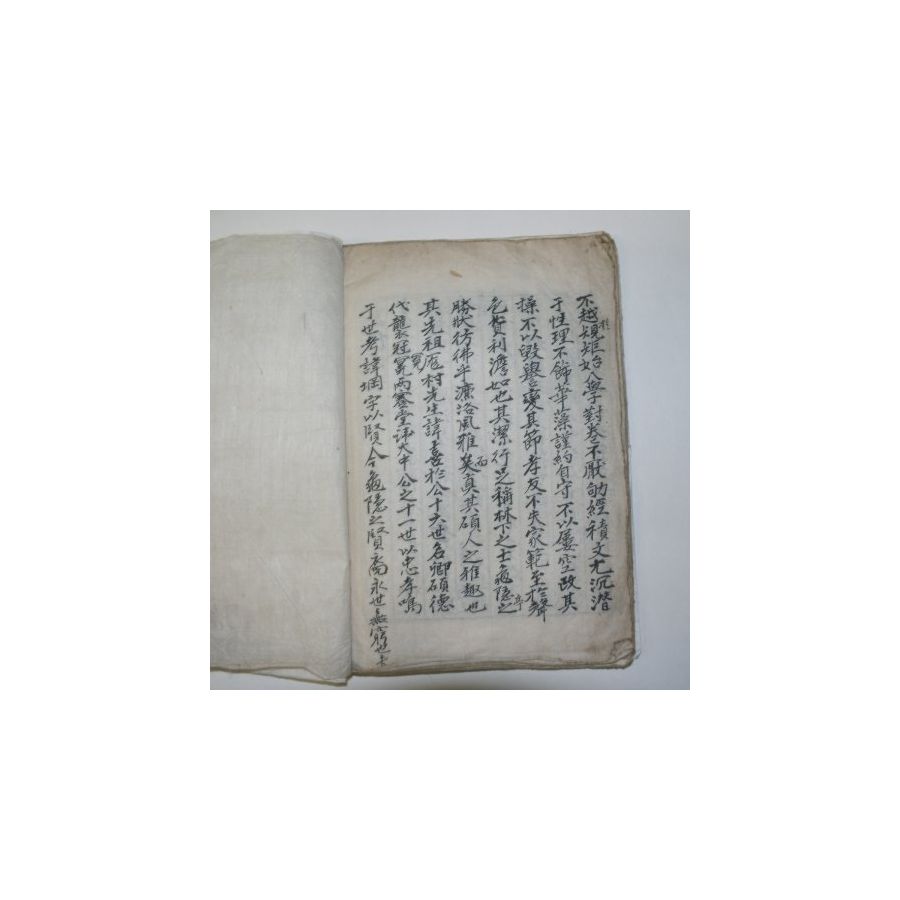 不越規矩始入學對卷不厭劬經積文尤沉潛
于性理不飾華藻謹約自守不以屢空改其
操不以毀譽變其節孝友不失家範至於聲
色貨利澹如也其潔行足稱林下之士龜隱亭之
勝狀彷彿乎濂洛風雅矣而真其碩人之雅趣也
其先祖 村先生諱喜於公十六世名卿碩德
代襲冠冕兩蹇堂諱大中公之十一世以忠孝鳴
于世考諱堈字以賢今龜隱之賢裔永世無窮也